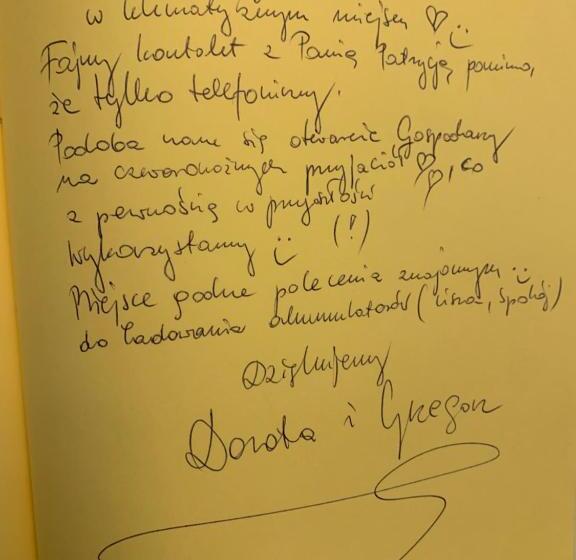 w klimatycznym miejscu ♡ ☺
Fajny kontakt z Panią Patrycją pomimo,
że tylko telefoniczny.
Podoba nam się otwarcie Gospodarzy
na czworonożnych przyjaciół ♡♡, co
z pewnością w przyszłości
wykorzystamy ☺ (!)
Miejsce godne polecenia znajomym ☺
do ładowania akumulatorów (cisza, spokój)
Dziękujemy
Dorota i Grzegorz